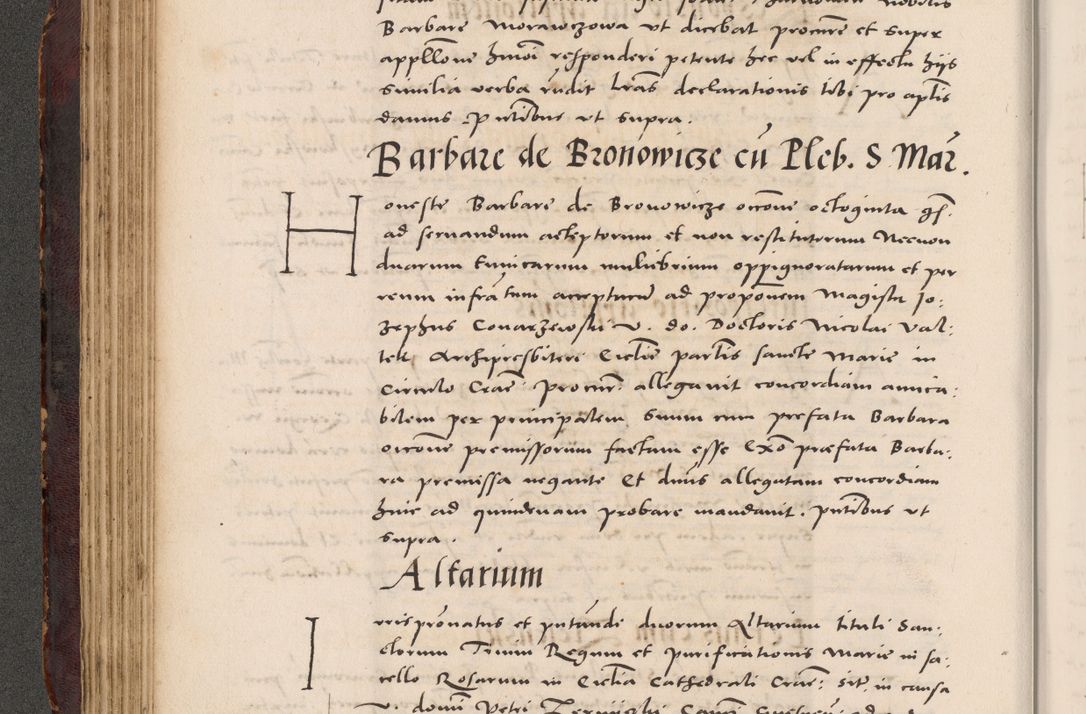 Barbare Morawczowa ut dicebat procure et super
appllone hmoi responderi petente hec vel in effectu hijs
similia verba rudit lras declarationis tibi pro aplis
damus Pntibus ut supra.
Barbare de Bronowicze cu Pleb. S Mar.
Honeste Barbare de Bronowicze occone octoginta gs.
ad servandum acceptorum et non restitutorum Necnon
duarum tunicarum muliebrium oppignoratarum et per
reum infra tum accepturu ad proponem Magistri Jo:
zephus Conarzewski v. do. Doctoris Nicolai Val:
tek Archipresbiteri Ecclie partis sancte Marie in
Circulo Crac: Procur: allegavit concordiam amica:
bilem per principalem suum cum prefata Barbara
occone premissorum factam esse Exo prefata Barba:
ra premissa negante Et dnus allegatam concordiam
hinc ad quindenam probare mandavit. Pntibus ut
supra.
Altarium
Iurispronatus et putandi duorum Altarium tituli San:
ctorum Trium Regum et purificationis Marie in sa:
cello Rosarum in Ecclia Cathedrali Crac: sit: in causa
v. domi Petri